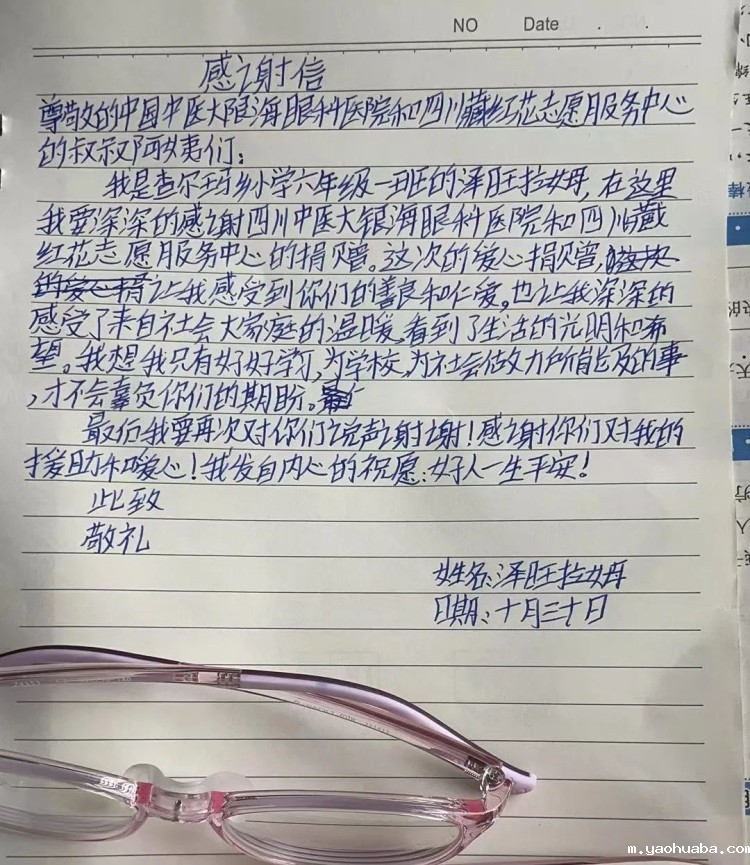 NO Date . .
感谢信
尊敬的中国中医大银海眼科医院和四川藏红花志愿服务中心
的叔叔阿姨们:
我是查尔玛乡小学六年级一班的泽旺拉姆,在这里
我要深深的感谢四川中医大银海眼科医院和四川藏
红花志愿服务中心的捐赠。这次的爱心捐赠,
的爱心捐让我感受到你们的善良和仁爱。也让我深深的
感受了来自社会大家庭的温暖,看到了生活的光明和希
望。我想我只有好好学习,为学校,为社会做力所能及的事
,才不会辜负你们的期盼。最
最后我要再次对你们说声谢谢!感谢你们对我的
援助和暖心!我发自内心的祝愿:好人一生平安!
此致
敬礼
姓名:泽旺拉姆
日期:十月三十日
m.yaohuaba.com